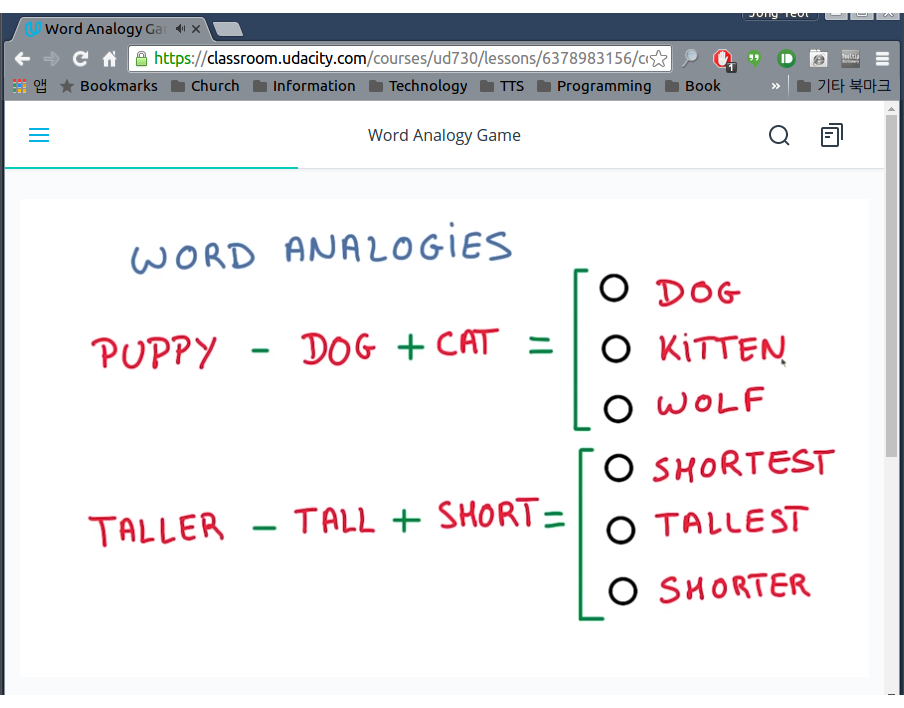 Word Analogy Ga
https://classroom.udacity.com/courses/ud730/lessons/6378983156/c
1
앱 Bookmarks Church Information Technology TTS Programming Book » 기타 북마크
Word Analogy Game
WORD ANALOGIES
PUPPY - DOG + CAT =
DOG
KITTEN
WOLF
TALLER - TALL + SHORT =
SHORTEST
TALLEST
SHORTER